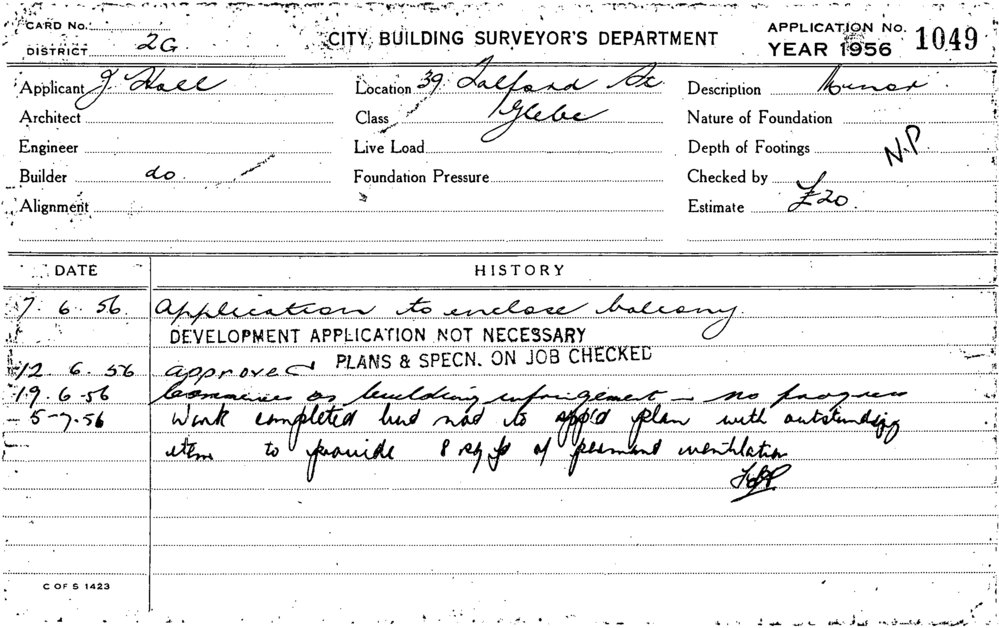 CARD NO.
DISTRICT 2G
CITY BUILDING SURVEYOR'S DEPARTMENT
APPLICATION NO. 1049
YEAR 1956
Applicant J Hall
Location 39 Talford St
Description Minor
Architect
Class Glebe
Nature of Foundation
Engineer
Live Load
Depth of Footings N.P.
Builder do
Foundation Pressure
Checked by
Alignment
Estimate £20.
DATE HISTORY
7. 6. 56. Application to enclose balcony
DEVELOPMENT APPLICATION NOT NECESSARY
PLANS & SPECN. ON JOB CHECKED
12 6. 56 approved
19. 6-56 as building - no progress
5-7-56 Work completed but not to app'd plan with outstanding
item to provide 8 sq ft of permant ventilation
C OF S 1423